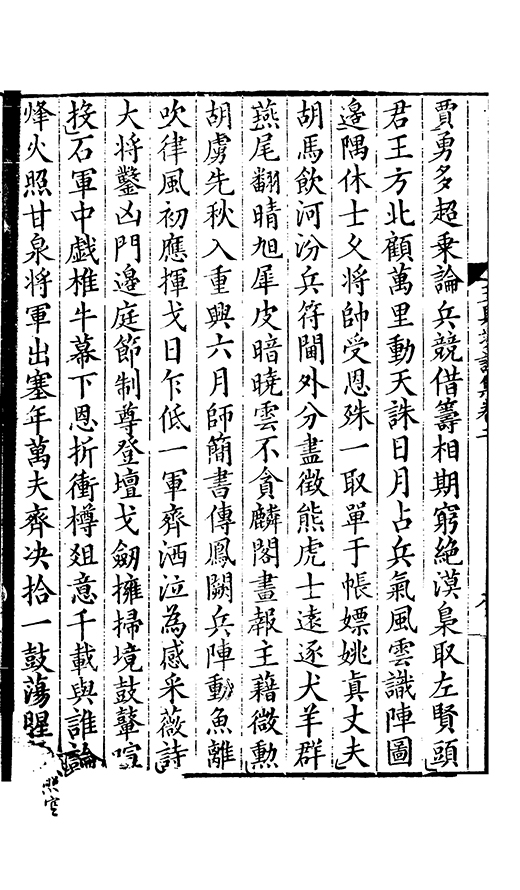 賈勇多超乗論兵競借籌相期窮絶漠梟取左賢頭
君王方北顧萬里動天誅日月占兵氣風雲識陣圖
邉隅休士夊將帥受恩殊一取單于帳嫖姚真丈夫
胡馬飲河汾兵符閫外分盡徴熊虎士遠逐犬羊群
燕尾翻晴旭犀皮暗曉雲不貪麟閣畫報主藉微勲
胡虜先秋入重興六月師簡書傳鳳闕兵陣動魚離
吹律風初應揮戈日乍低一軍齊洒泣為感采薇詩
大将鑿凶門邉庭節制尊登壇戈劒擁掃境鼓鼙喧
投石軍中戲椎牛幕下恩折衝樽爼意千載與誰論
烽火照甘泉将軍出塞年萬夫齊决拾一鼓蕩腥